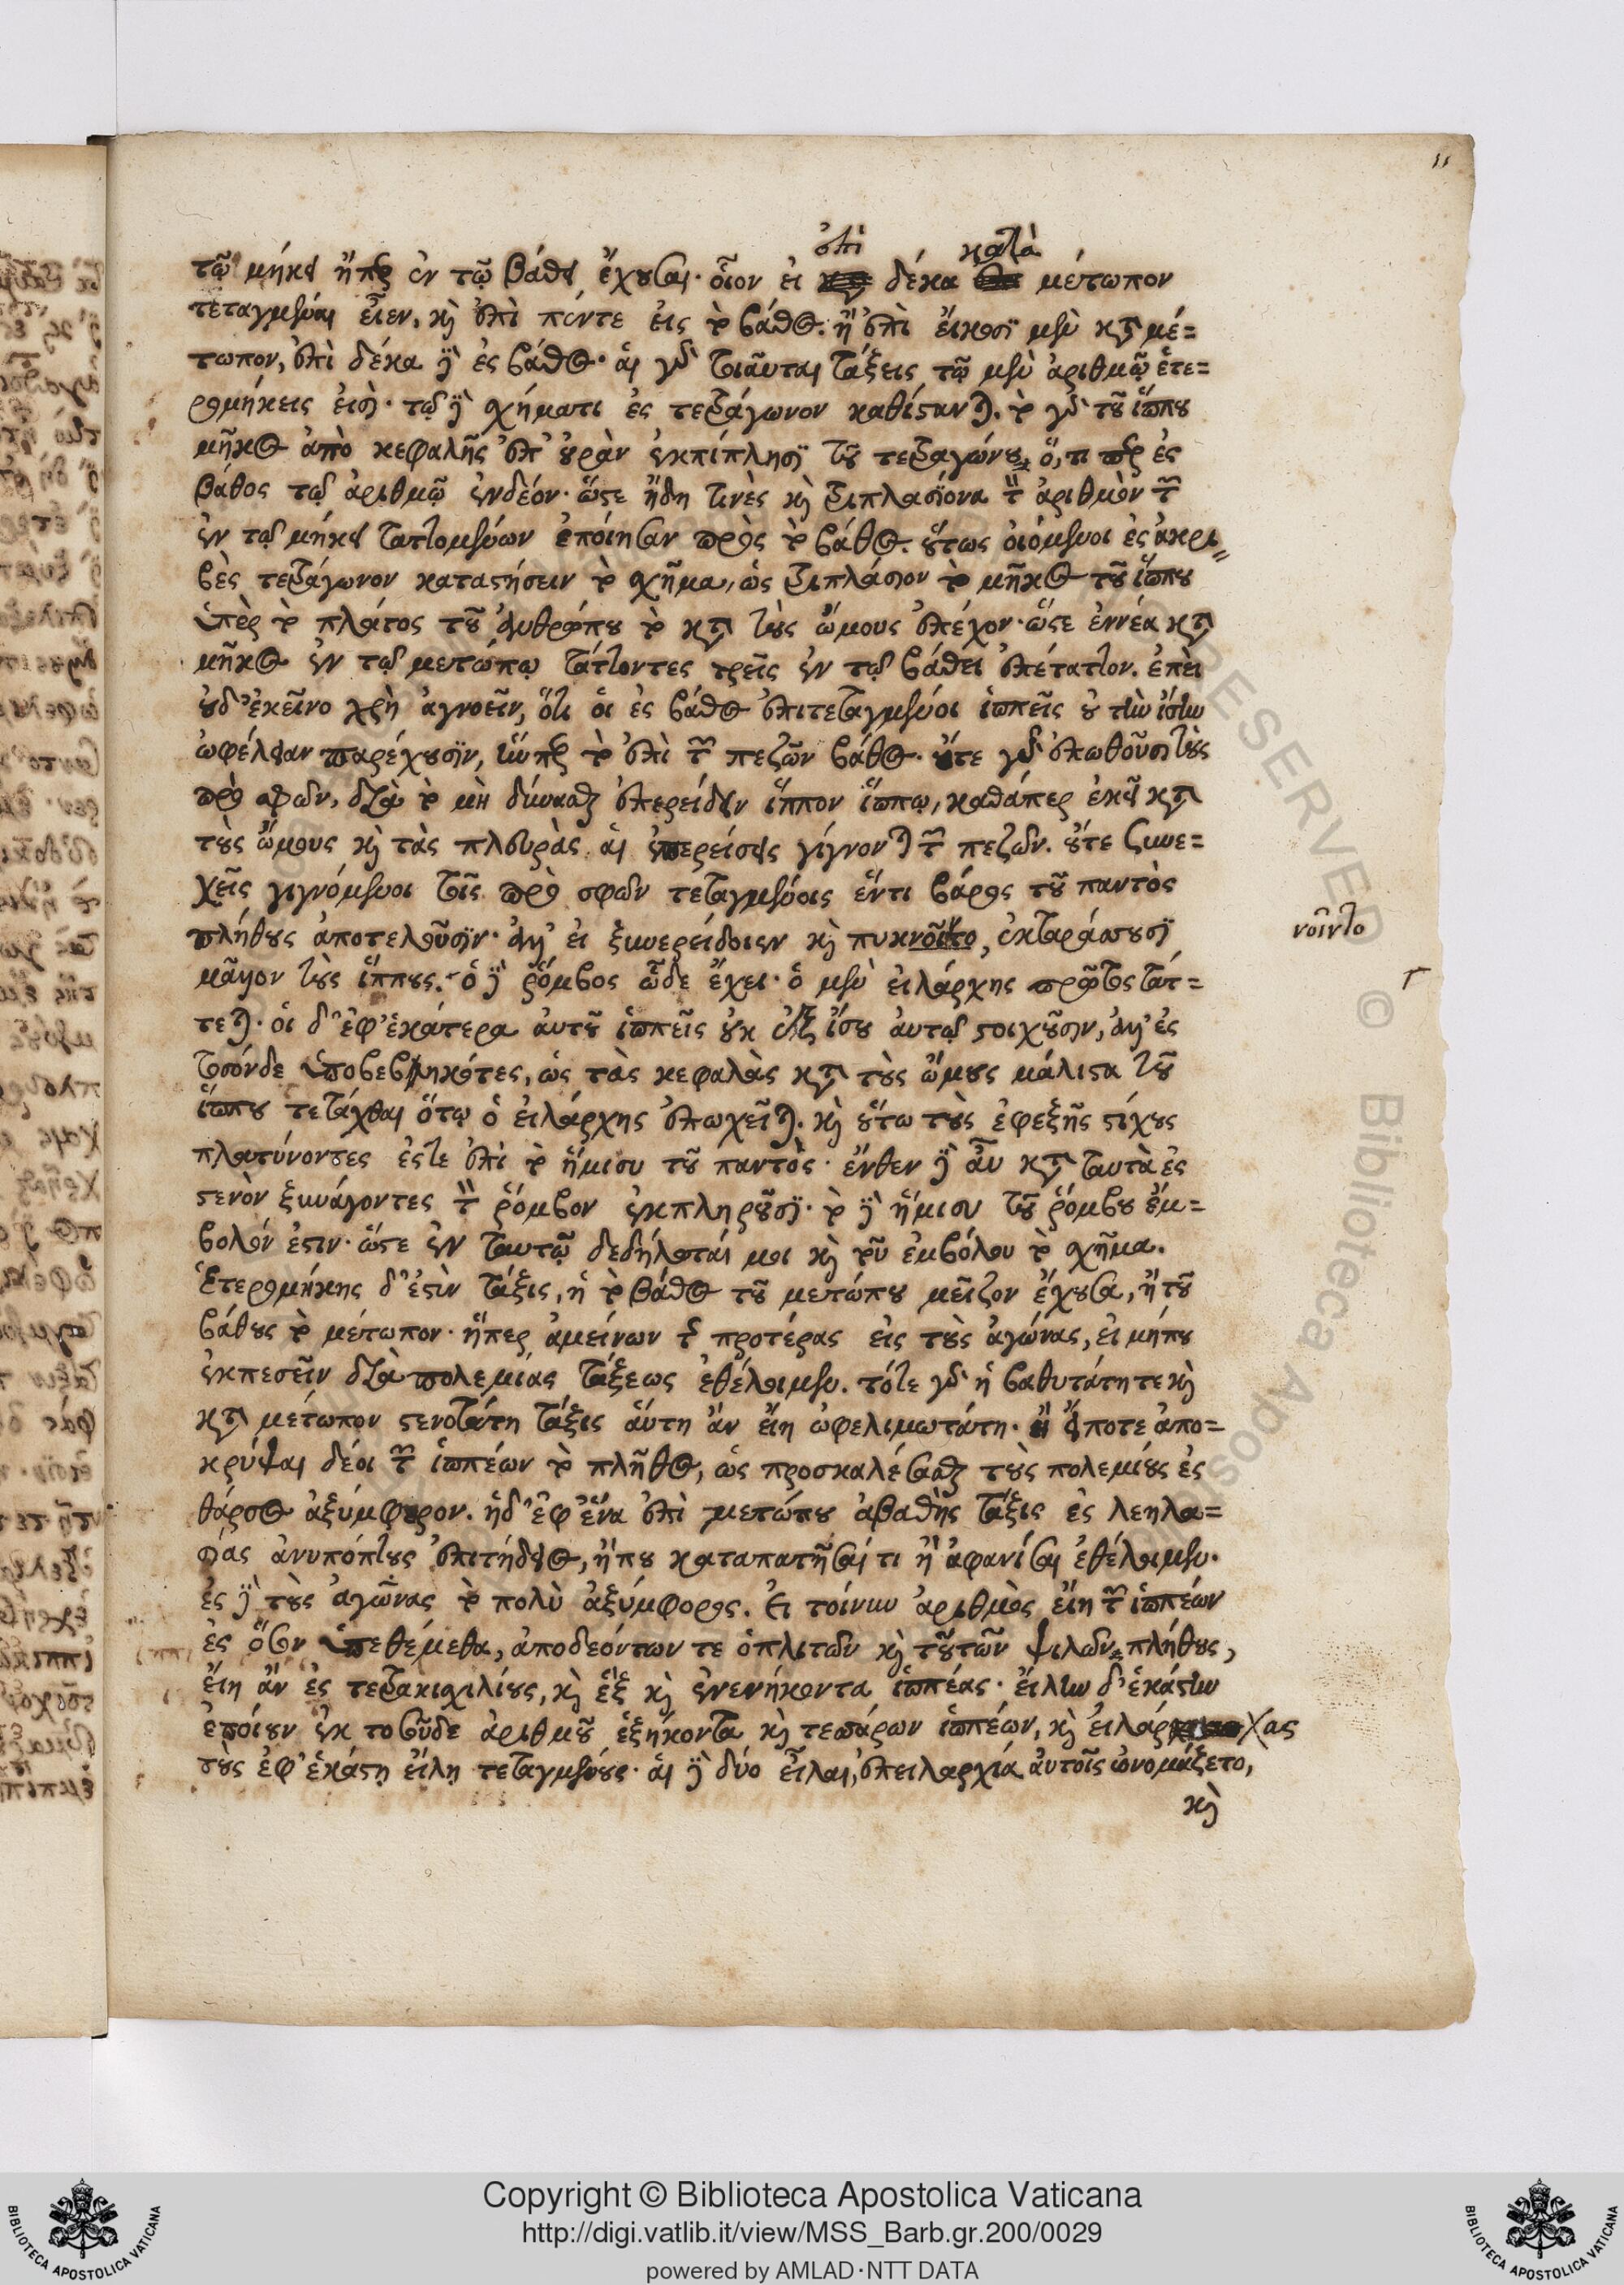 11
ἐπὶ κατὰ
τῷ μήκει ἤπερ ἐν τῷ βάθει ἔχουσαι· οἷον εἰ δέκα μέτωπον
τεταγμέναι εἶεν, καὶ ἐπὶ πέντε εἰς τὸ βάθος. ἢ ἐπὶ εἴκοσι μὲν κατὰ μέ=
τωπον, ἐπὶ δέκα δὲ ἐς βάθος· αἱ γὰρ τοιαῦται τάξεις τῷ μὲν ἀριθμῷ ἑτε=
ρομήκεις εἰσὶ· τῷ δὲ σχήματι ἐς τετράγωνον καθίστανται. τὸ γὰρ τοῦ ἵππου
μῆκος ἀπὸ κεφαλῆς ἐπ' οὐρὰν ἐκπίπλησι τοῦ τετραγώνου, ὅ, τι περ ἐς
βάθος τῷ ἀριθμῷ ἐνδέον· ὥστε ἤδη τινὲς καὶ τριπλασίονα τὸν ἀριθμὸν τῶν
ἐν τῷ μήκει ταττομένων ἐποίησαν πρὸς τὸ βάθος. οὕτως οἰόμενοι ἐς ἀκρι=
βὲς τετράγωνον καταστήσειν τὸ σχῆμα, ὡς τριπλάσιον τὸ μῆκος τοῦ ἵππου
ὑπὲρ τὸ πλάτος τοῦ ἀνθρώπου τὸ κατὰ τοὺς ὤμους ἐπέχον· ὥστε ἐννέα κατὰ
μῆκος ἐν τῷ μετώπῳ τάττοντες τρεῖς ἐν τῷ βάθει ἐπέταττον. ἐπεὶ
οὐδ' ἐκεῖνο χρὴ ἀγνοεῖν, ὅτι οἱ ἐς βάθος ἐπιτεταγμένοι ἱππεῖς οὐ τὴν ἴσην
ὠφέλειαν παρέχουσιν, ἥνπερ τὸ ἐπὶ τῶν πεζῶν βάθος. οὔτε γὰρ ἐπωθοῦσι τοὺς
πρὸ σφῶν, διὰ τὸ μὴ δύνασθαι ἐπερείδειν ἵππον ἵππῳ, καθάπερ ἐκεῖ κατὰ
τοὺς ὤμους καὶ τὰς πλευρὰς αἱ ἐπερείσεις γίγνονται τῶν πεζῶν. οὔτε ξυνε=
χεῖς γιγνόμενοι τοῖς πρὸ σφῶν τεταγμένοις ἕν τι βάρος τοῦ παντὸς
πλήθους ἀποτελοῦσιν· ἀλλ' εἰ ξυνερείδοιεν καὶ πυκνοῖτο, ἐκταράσσουσι
νοῖντο
μᾶλλον τοὺς ἵππους. ὁ δὲ ῥόμβος ὧδε ἔχει· ὁ μὲν εἰλάρχης πρῶτος τάτ=
τεται. οἱ δ' ἐφ' ἑκάτερα αὐτοῦ ἱππεῖς οὐκ ἐξ ἴσου αὐτῷ στοιχοῦσιν, ἀλλ' ἐς
τοσόνδε ὑποβεβληκότες, ὡς τὰς κεφαλὰς κατὰ τοὺς ὤμους μάλιστα τοῦ
ἵππου τετάχθαι ὅτῳ ὁ εἰλάρχης ἐπωχεῖται. καὶ οὕτω τοὺς ἐφεξῆς στίχους
πλατύνοντες ἔστε ἐπὶ τὸ ἥμισυ τοῦ παντὸς· ἔνθεν δὲ αὖ κατὰ ταυτὰ ἐς
στενὸν ξυνάγοντες τὸν ῥόμβον ἐκπληροῦσι· τὸ δὲ ἥμισυ τοῦ ῥόμβου ἔμ=
βολόν ἐστιν· ὥστε ἐν ταυτῷ δεδήλωταί μοι καὶ τοῦ ἐμβόλου τὸ σχῆμα.
Ἑτερομήκης δ' ἐστὶν τάξις, ἡ τὸ βάθος τοῦ μετώπου μεῖζον ἔχουσα, ἢ τοῦ
βάθους τὸ μέτωπον· ἥπερ ἀμείνων τῆς προτέρας εἰς τοὺς ἀγώνας, εἰ μήπου
ἐκπεσεῖν διὰ πολεμίας τάξεως ἐθέλοιμεν. τότε γὰρ ἡ βαθυτάτη τε καὶ
κατὰ μέτωπον στενοτάτη τάξις αὕτη ἂν εἴη ὠφελιμωτάτη· ἢ εἴποτε ἀπο=
κρύψαι δέοι τῶν ἱππέων τὸ πλῆθος, ὡς προσκαλέσασθαι τοὺς πολεμίους ἐς
θάρσος ἀξύμφορον. ἡ δ' ἐφ' ἕνα ἐπὶ μετώπου ἀβαθὴς τάξις ἐς λεηλα=
σίας ἀνυπόπτους ἐπιτήδειος, ἤπου καταπατῆσαί τι ἢ ἀφανίσαι ἐθέλοιμεν.
ἐς δὲ τοὺς ἀγῶνας τὸ πολὺ ἀξύμφορος. Εἰ τοίνυν ἀριθμὸς εἴη τῶν ἱππέων
ἐς ὅσον ὑπεθέμεθα, ἀποδεόντων τε ὁπλιτῶν καὶ τοῦ τῶν ψιλῶν πλήθους,
εἴη ἂν ἐς τετρακισχιλίους, καὶ ἓξ καὶ ἐνενήκοντα ἱππέας· εἴλην δ' ἑκάστην
ἐποίουν ἐκ τοσοῦδε ἀριθμοῦ ἑξήκοντα καὶ τεσσάρων ἱππέων, καὶ εἰλάρχας
τοὺς ἐφ' ἑκάστῃ εἴλῃ τεταγμένους· αἱ δὲ δύο εἶλαι, ἐπειλαρχία αὐτοῖς ὠνομάζετο,
καὶ
Copyright © Biblioteca Apostolica Vaticana
http://digi.vatlib.it/view/MSS_Barb.gr.200/0029
powered by AMLAD·NTT DATA
BIBLIOTECA APOSTOLICA VATICANA
BIBLIOTECA APOSTOLICA VATICANA